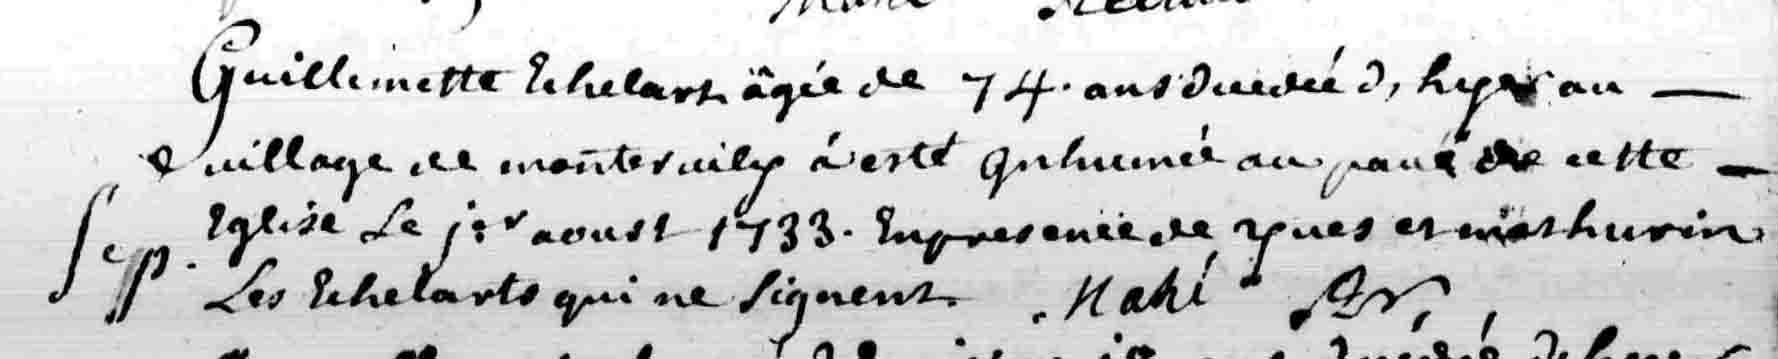 Guillemette Echelart âgée de 74. ans decedéé d, hyer au —
village de monteruily á esté Inhumée au pavé de cette —
Sep. Eglise Le j:er aoust 1733. En presence de yves et mathurin
Les Echelarts qui ne signent. Mahé